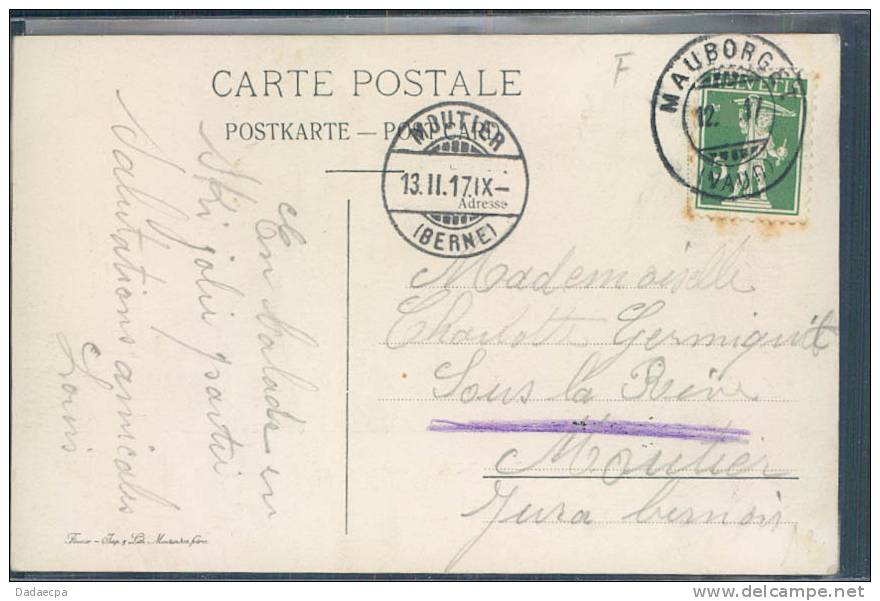 CARTE POSTALE
POSTKARTE — POST CARD
F
MAUBORGET
12. 17
(VAUD)
HELVETIA
5
MOUTIER
13.II.17.IX—
(BERNE)
Adresse
En balade en
Ski jolie partie
Salutations amicales
Louis
Mademoiselle
Charlotte Germiquet
Sous la Rive
Moutier
Jura bernois
Dadaecpa
www.delcampe.net